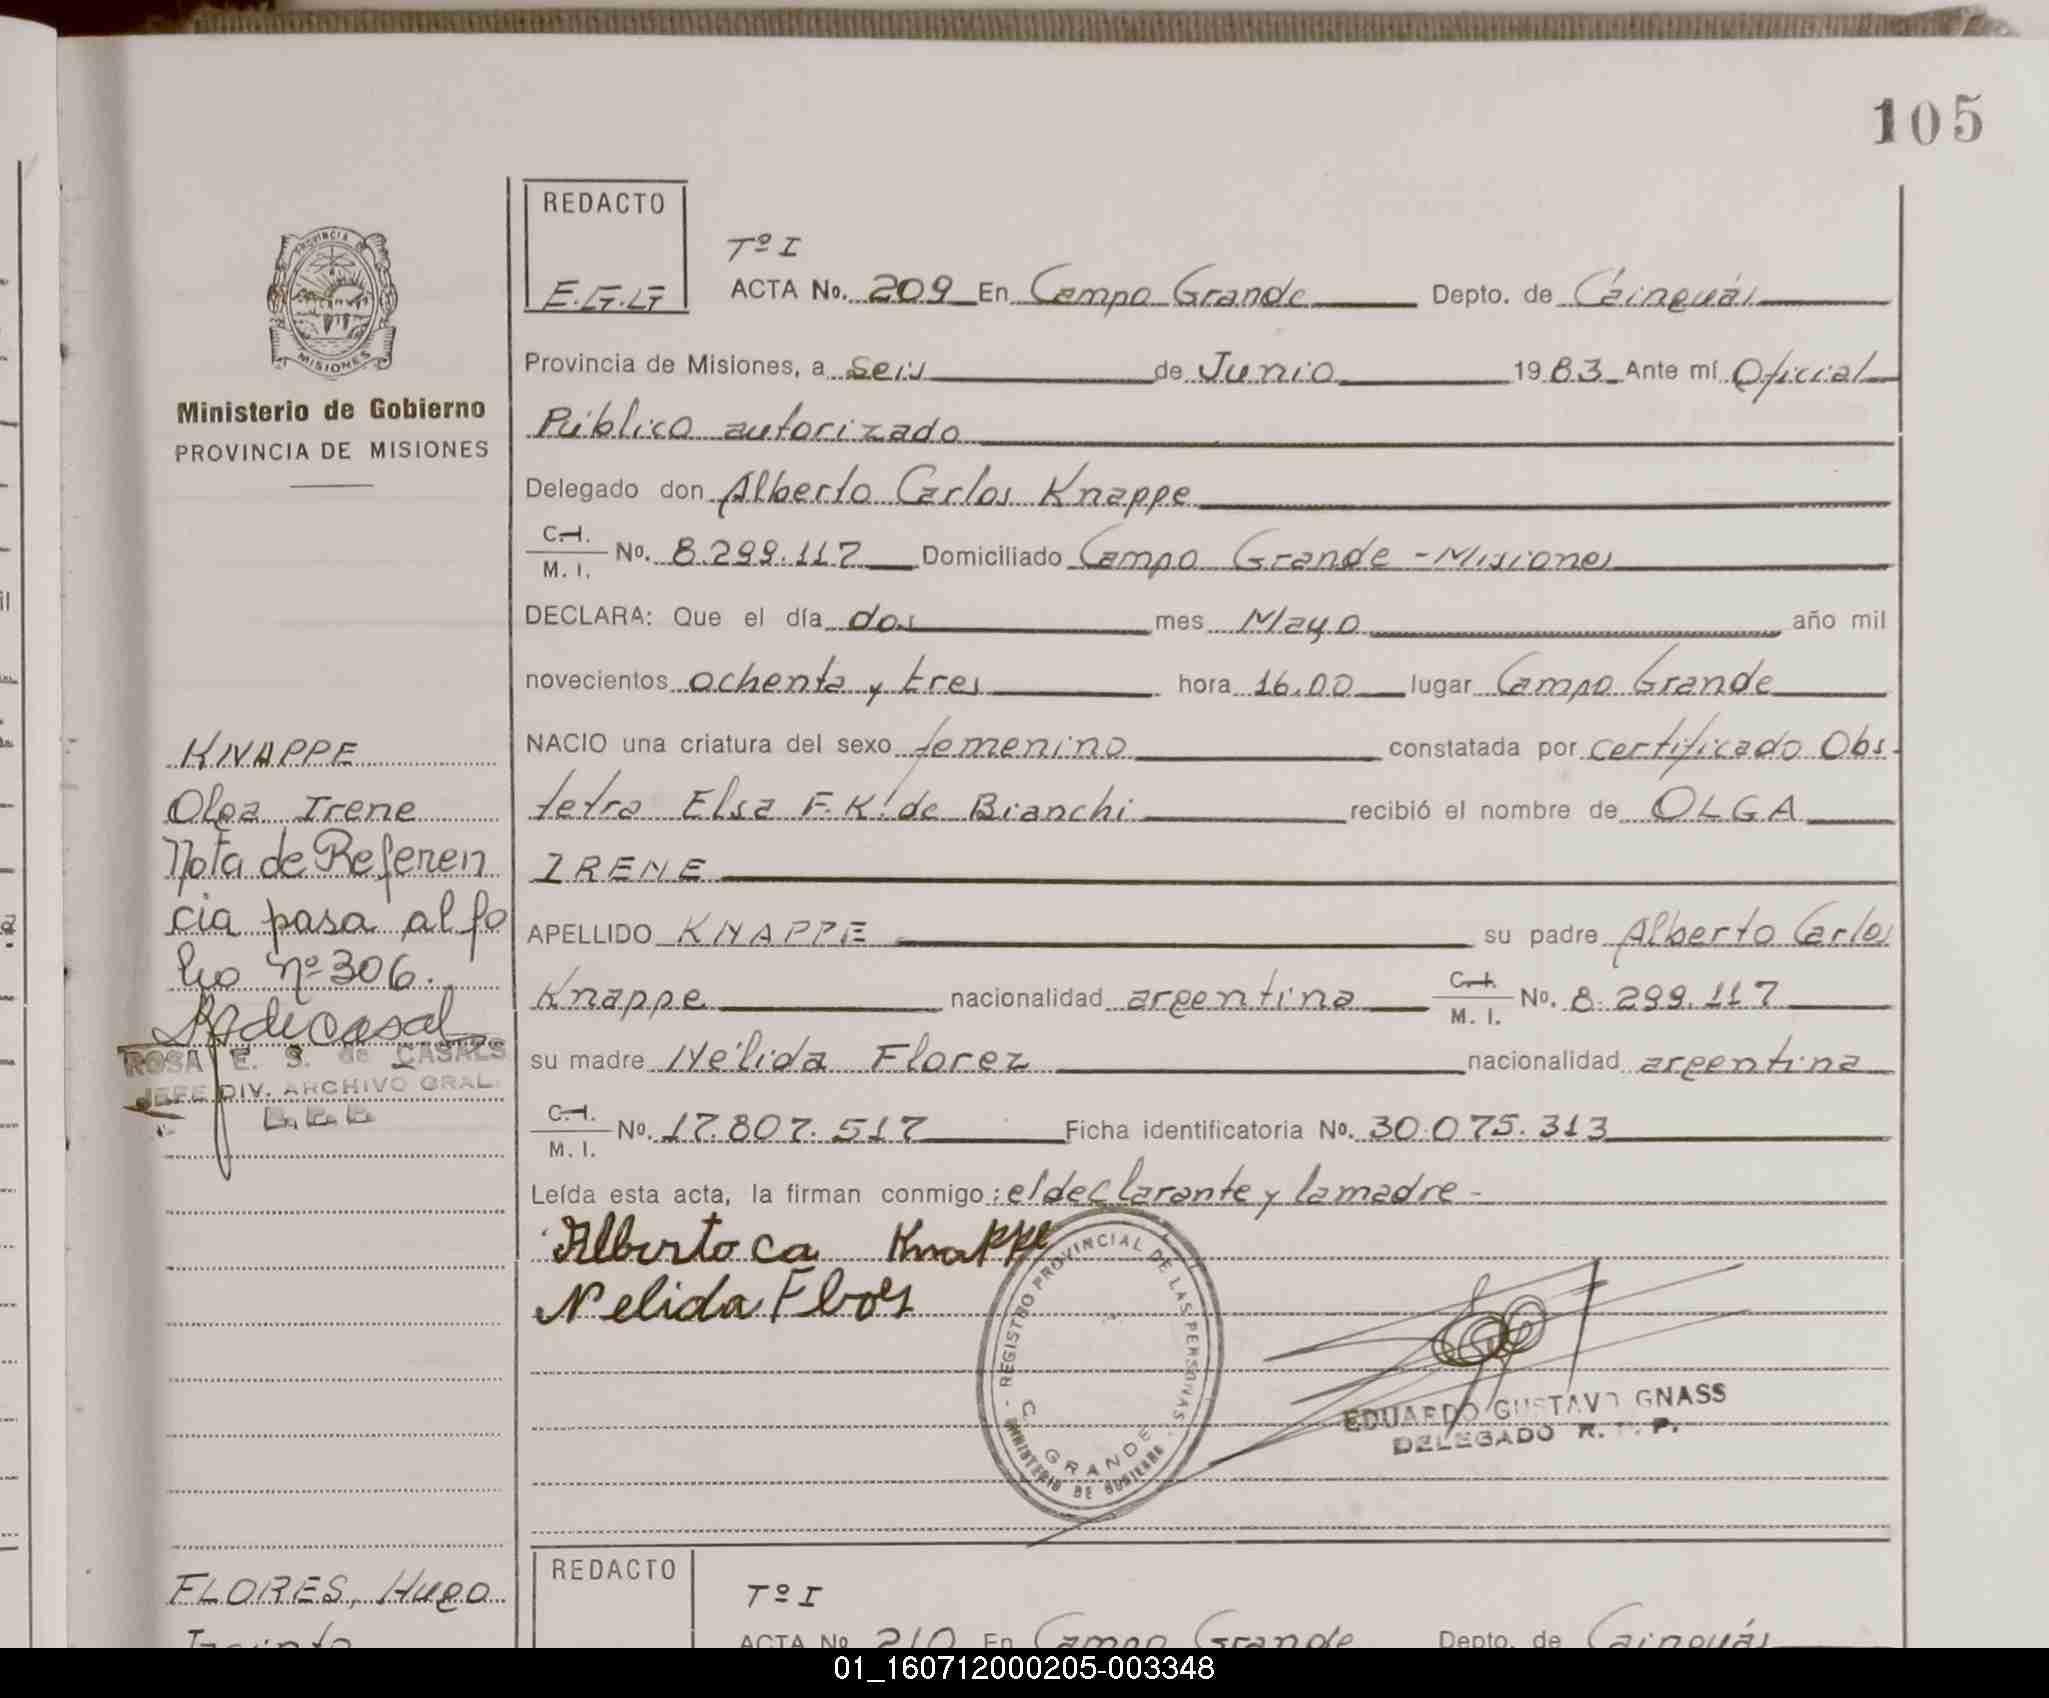 105
REDACTO
E.G.G
PROVINCIA DE
MISIONES
Ministerio de Gobierno
PROVINCIA DE MISIONES
Tº I
ACTA No. 209 En Campo Grande Depto. de Cainguás
Provincia de Misiones, a seis de Junio 1983 Ante mí Oficial
Público autorizado
Delegado don Alberto Carlos Knappe
C.I. M. I. No. 8.299.117 Domiciliado Campo Grande - Misiones
DECLARA: Que el día dos mes Mayo año mil
novecientos ochenta y tres hora 16.00 lugar Campo Grande
NACIO una criatura del sexo femenino constatada por certificado Obs-
tetra Elsa F.K. de Bianchi recibió el nombre de OLGA
IRENE
APELLIDO KNAPPE su padre Alberto Carlos
Knappe nacionalidad argentina C.I. M. I. No. 8.299.117
su madre Nélida Florez nacionalidad argentina
C.I. M. I. No. 17.807.517 Ficha identificatoria No. 30.075.313
Leída esta acta, la firman conmigo: el declarante y la madre-
Alberto ca Knappe
Nelida Floes
REGISTRO PROVINCIAL DE LAS PERSONAS
C. GRANDE
MINISTERIO DE GOBIERNO
EDUARDO GUSTAVO GNASS
DELEGADO R. P.
KNAPPE
Olga Irene
Nota de Referen
cia pasa al fo
lio nº 306.
ROSA E. S. de CASALS
JEFE DIV. ARCHIVO GRAL.
FLORES, Hugo
Jacinto
REDACTO
Tº I
ACTA No 210 En Campo Grande Depto. de Cainguás
01_160712000205-003348